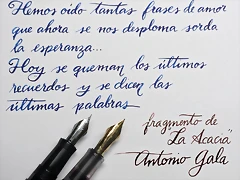 Hemos oído tantas frases de amor
que ahora se nos desploma sorda
la esperanza...
Hoy se queman los últimos
recuerdos y se dicen las
últimas palabras
fragmento de
"La Acacia"
Antonio Gala